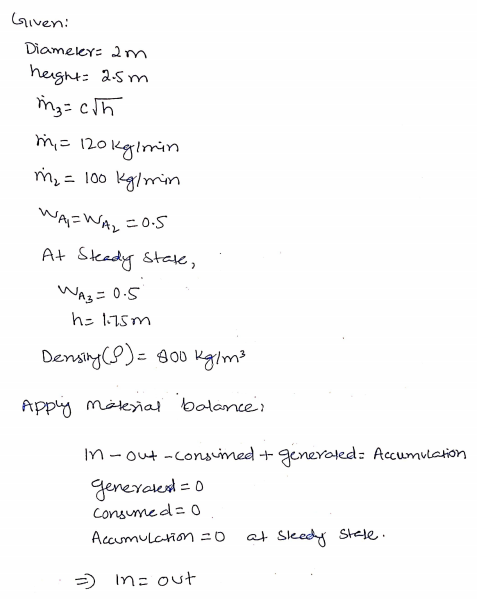 Given:
Diameter= 2m
height= 2.5m
ṁ₃= c√h
ṁ₁= 120 kg/min
ṁ₂= 100 kg/min
W_A₁=W_A₂ =0.5
At Steady State,
W_A₃= 0.5
h= 1.75m
Density(ρ)= 800 kg/m³
Apply material balance,
In - out - consumed + generated= Accumulation
generated=0
consumed=0
Accumulation=0 at steady state.
⇒ In= out